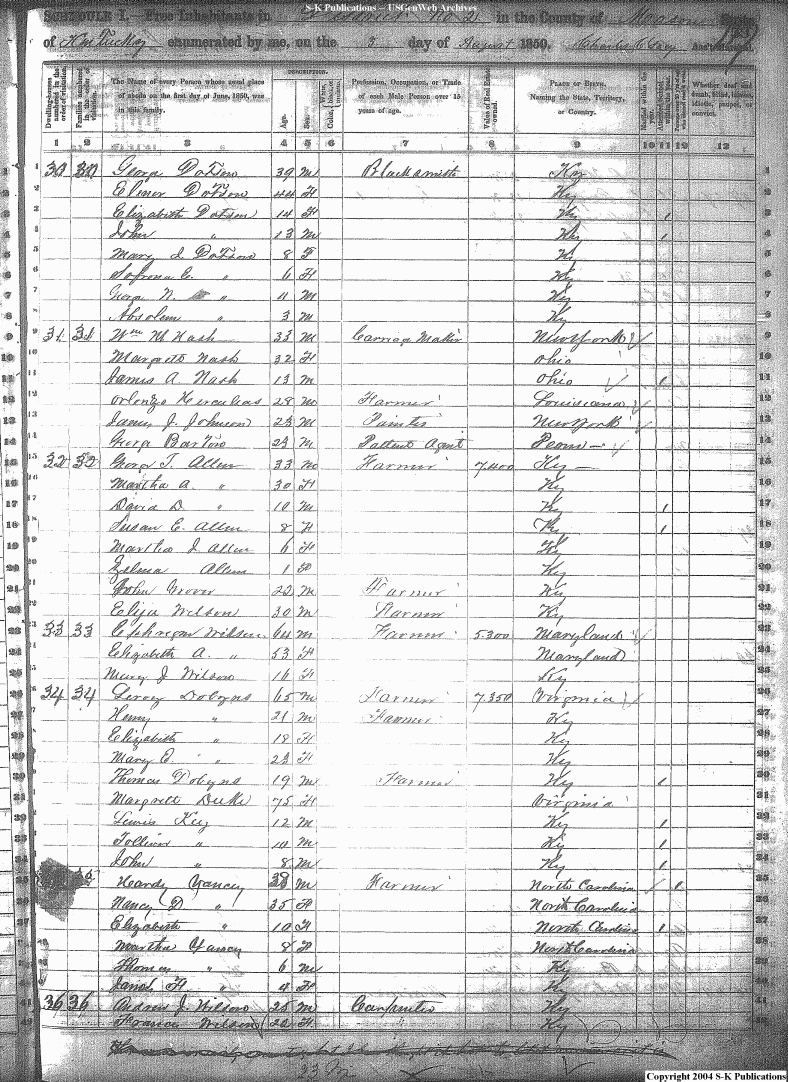 S-K Publications -- USGenWeb Archives
SCHEDULE I.—Free Inhabitants in District No 2 in the County of Mason State
of Kentucky enumerated by me, on the 3 day of August 1850. Ass't Marshal.
Dwelling-houses numbered in the order of visitation.
Families numbered in the order of visitation.
The Name of every Person whose usual place of abode on the first day of June, 1850, was in this family.
DESCRIPTION.
Age.
Sex.
Color, White, black, or mulatto.
Profession, Occupation, or Trade of each Male Person over 15 years of age.
Value of Real Estate owned.
PLACE OF BIRTH. Naming the State, Territory, or Country.
Married within the year.
Whether deaf and dumb, blind, insane, idiotic, pauper, or convict.
1 2 3 4 5 6 7 8 9 10 11 12 13
1 30 30 George Dotson 39 M Blacksmith Ky 1
2 Elinor Dotson 44 F Ky 2
3 Elizabeth Dotson 14 F Ky / 3
4 John " 13 M Ky / 4
5 Mary J Dotson 8 F Ky 5
6 Sofrona C. " 6 F Ky 6
7 George N. " 11 M Ky 7
8 Absolem " 3 M Ky 8
9 31 31 Wm H Nash 33 M Carriage Maker New York ✓ 9
10 Margrett Nash 32 F Ohio 10
11 James A Nash 13 M Ohio ✓ / 11
12 Herculas 28 M Farmer Louisiana ✓ 12
13 James J. Johnson 23 M Painter New York ✓ 13
14 George Bartow 23 M Pattent Agent Penn — ✓ 14
15 32 32 George T. Allen 33 M Farmer 7,400 Ky — 15
16 Martha A. " 30 F Ky 16
17 David D. " 10 M Ky / 17
18 Susan E. Allen 8 F Ky / 18
19 Martha J Allen 6 F Ky 19
20 Zelma Allen 1 F Ky 20
21 John Grover 22 M Farmer Ky 21
22 Elija Wilson 30 M Farmer Ky 22
23 33 33 Wilson 64 M Farmer 5.300 Maryland ✓ 23
24 Elizabeth A. " 53 F Maryland 24
25 Mary J Wilson 16 F Ky 25
26 34 34 Leroy Dobyns 65 M Farmer 7.350 Virginia ✓ 26
27 Henry " 21 M Farmer Ky 27
28 Elizabeth " 18 F Ky 28
29 Mary E. " 23 F Ky 29
30 Thomas Dobyns 19 M Farmer Ky / 30
31 Margrett Duke 75 F Virginia 31
32 Lewis Key 12 M Ky / 32
33 Tolliver " 10 M Ky / 33
34 John " 8 M Ky / 34
35 Hardy Yancey 38 M Farmer North Carolina ✓ / 35
36 Nancy D " 35 F North Carolina 36
37 Elizabeth " 10 F North Carolina / 37
38 Martha Yancey 8 F North Carolina 38
39 Thomas " 6 M Ky 39
40 F " 4 F Ky 40
41 36 36 Andrew J. Wilson 25 M Carpenter Ky 41
42 Frances Wilson 22 F " Ky 42
23 M
Copyright 2004 S-K Publications